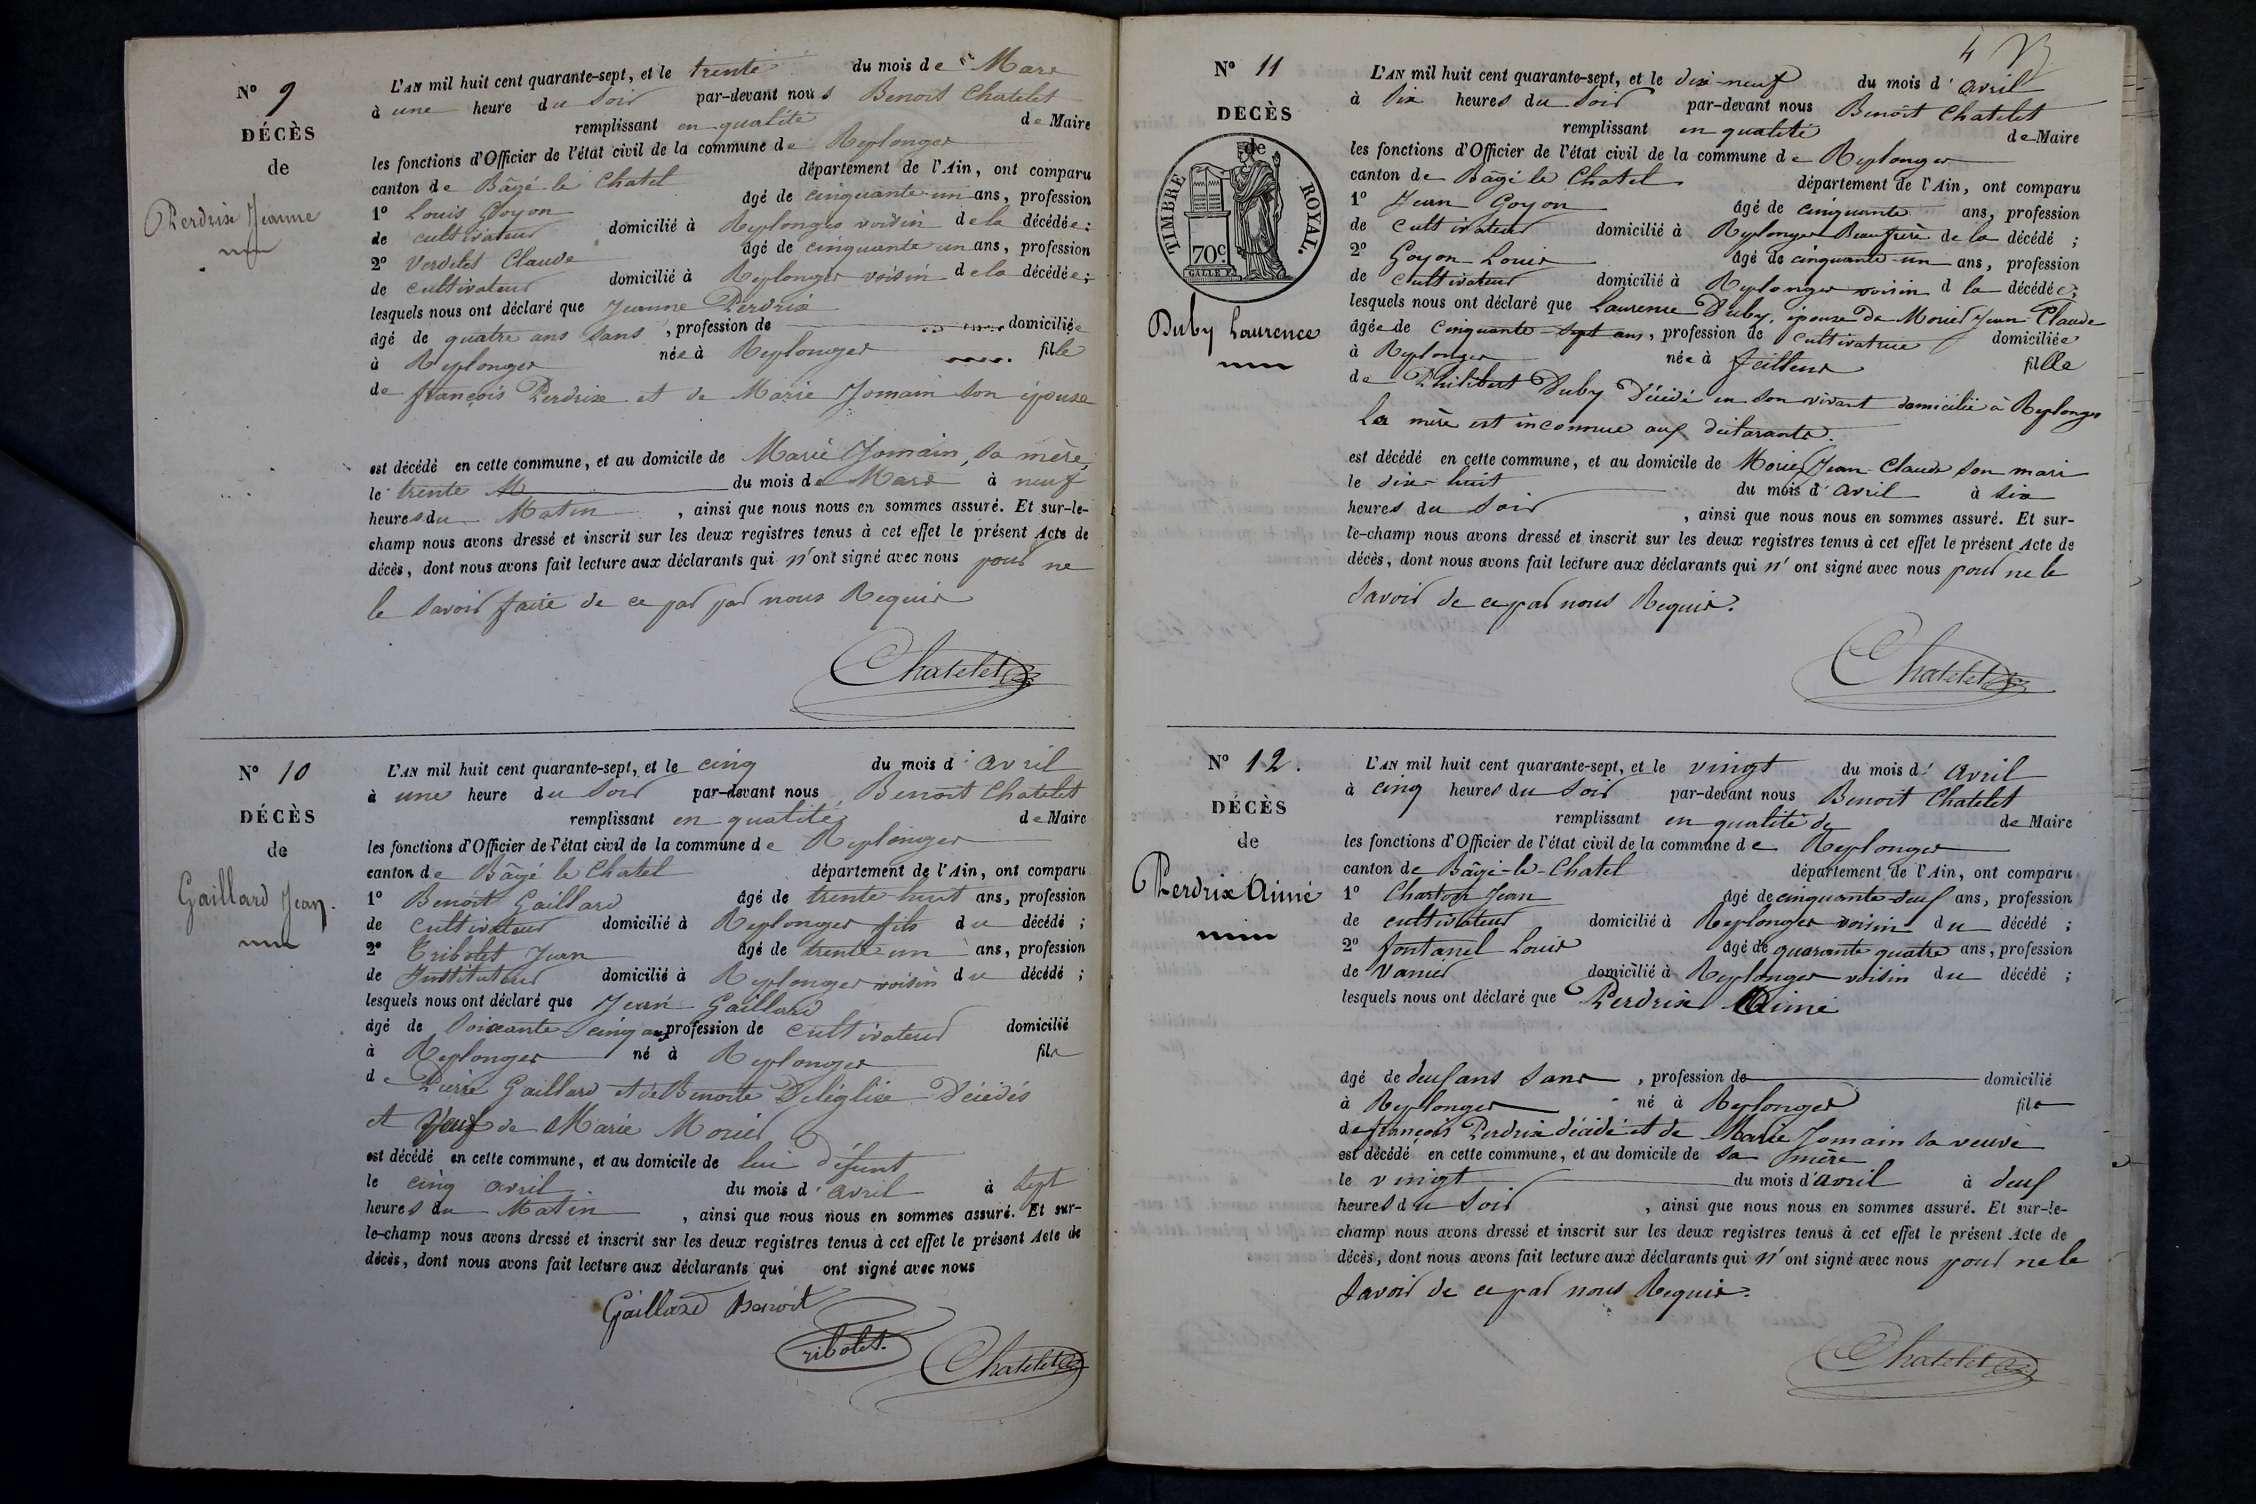 N° 9
DÉCÈS
de
Perdrix Jeanne
L'AN mil huit cent quarante-sept, et le trente du mois de Mars
à une heure du Soir par-devant nous Benoit Chatelet
remplissant en qualité de Maire
les fonctions d'Officier de l'état civil de la commune de Replonges
canton de Bâgé le Chatel département de l'Ain, ont comparu
1° Louis Goyon âgé de cinquante un ans, profession
de cultivateur domicilié à Replonges voisin de la décédée;
2° Verdelet Claude âgé de cinquante un ans, profession
de cultivateur domicilié à Replonges voisin de la décédée;
lesquels nous ont déclaré que Jeanne Perdrix
âgé de quatre ans Sans , profession de domiciliée
à Replonges née à Replonges fille
de françois Perdrix et de Marie Jomain son épouse
est décédé en cette commune, et au domicile de Marie Jomain, sa mère,
le trente du mois de Mars à neuf
heures du Matin , ainsi que nous nous en sommes assuré. Et sur-le-
champ nous avons dressé et inscrit sur les deux registres tenus à cet effet le présent Acte de
décès, dont nous avons fait lecture aux déclarants qui n'ont signé avec nous pour ne
le Savoir faire de ce par par nous Requis
Chatelet
N° 10
DÉCÈS
de
Gaillard Jean.
L'AN mil huit cent quarante-sept, et le cinq du mois d'avril
à une heure du Soir par-devant nous Benoit Chatelet
remplissant en qualité de Maire
les fonctions d'Officier de l'état civil de la commune de Replonges
canton de Bâgé le Chatel département de l'Ain, ont comparu
1° Benoit Gaillard âgé de trente huit ans, profession
de cultivateur domicilié à Replonges fils du décédé ;
2° Tribolet Jean âgé de trente un ans, profession
de Instituteur domicilié à Replonges voisin du décédé ;
lesquels nous ont déclaré que Jean Gaillard
âgé de Soixante cinq ans profession de cultivateur domicilié
à Replonges né à Replonges fils
de Pierre Gaillard et de Benoite Deléglise Décédés
et Veuf de Marie Morier
est décédé en cette commune, et au domicile de lui défunt
le cinq avril du mois d'avril à Sept
heures du Matin , ainsi que nous nous en sommes assuré. Et sur-
le-champ nous avons dressé et inscrit sur les deux registres tenus à cet effet le présent Acte de
décès, dont nous avons fait lecture aux déclarants qui ont signé avec nous
Gaillard Benoit
Tribolet.
Chatelet
4
N° 11
DECÈS
de
TIMBRE ROYAL.
70c
Duby Laurence
L'AN mil huit cent quarante-sept, et le dix-neuf du mois d'avril
à Six heures du Soir par-devant nous Benoit Chatelet
remplissant en qualité de Maire
les fonctions d'Officier de l'état civil de la commune de Replonges
canton de Bâgé le Chatel département de l'Ain, ont comparu
1° Jean Goyon âgé de cinquante ans, profession
de cultivateur domicilié à Replonges Beaufrère de la décédé ;
2° Goyon Louis âgé de cinquante un ans, profession
de cultivateur domicilié à Replonges voisin d la décédée;
lesquels nous ont déclaré que Laurence Duby, épouse de Morier Jean Claude
âgée de Cinquante Sept ans, profession de cultivatrice domiciliée
à Replonges née à feillens fille
de Philibert Duby Décédé en son vivant domicilié à Replonges
La mère est inconnue aux déclarants.
est décédé en cette commune, et au domicile de Morier Jean Claude son mari
le dix-huit du mois d'avril à six
heures du Soir , ainsi que nous nous en sommes assuré. Et sur-
le-champ nous avons dressé et inscrit sur les deux registres tenus à cet effet le présent Acte de
décès, dont nous avons fait lecture aux déclarants qui n'ont signé avec nous pour ne le
Savoir de ce par nous Requis.
Chatelet
N° 12.
DÉCÈS
de
Perdrix Aimé
L'AN mil huit cent quarante-sept, et le vingt du mois d'avril
à cinq heures du Soir par-devant nous Benoit Chatelet
remplissant en qualité de de Maire
les fonctions d'Officier de l'état civil de la commune de Replonges
canton de Bâgé-le-Chatel département de l'Ain, ont comparu
1° Jean âgé de cinquante deux ans, profession
de cultivateur domicilié à Replonges voisin du décédé ;
2° fontanel Louis âgé de quarante quatre ans, profession
de Vanier domicilié à Replonges voisin du décédé ;
lesquels nous ont déclaré que Perdrix Aimé
âgé de deux ans Sans , profession de domicilié
à Replonges né à Replonges fils
de françois Perdrix décédé et de Marie Jomain sa veuve
est décédé en cette commune, et au domicile de sa mère
le vingt du mois d'avril à deux
heures du Soir , ainsi que nous nous en sommes assuré. Et sur-le-
champ nous avons dressé et inscrit sur les deux registres tenus à cet effet le présent Acte de
décès, dont nous avons fait lecture aux déclarants qui n'ont signé avec nous pour ne le
Savoir de ce par nous Requis.
Chatelet